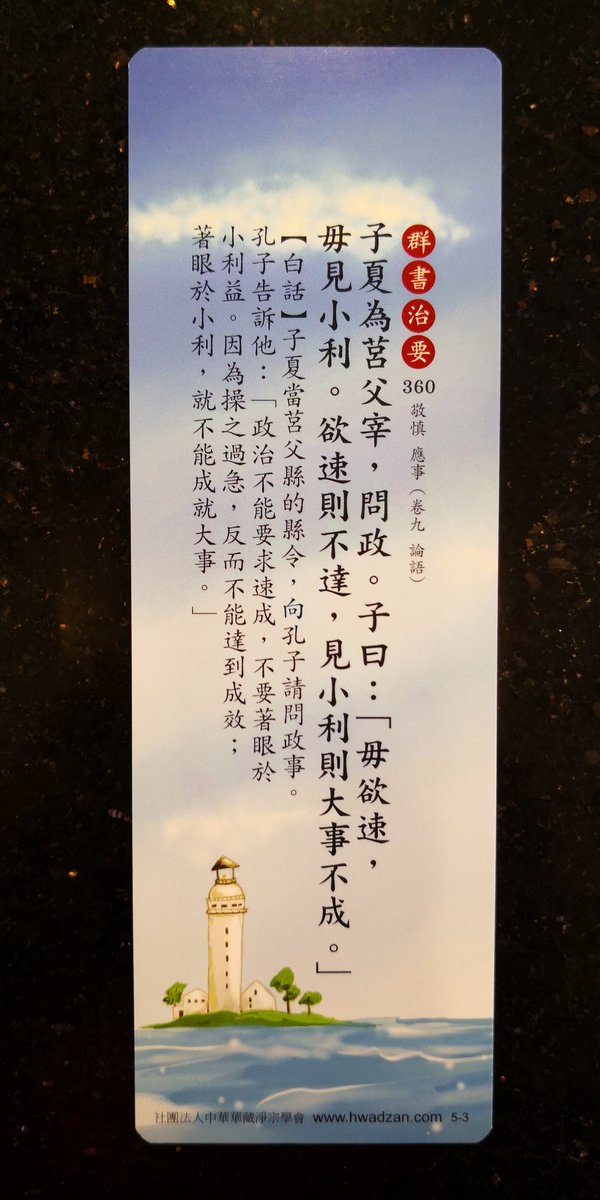 群書治要 360 敬慎 應事（卷九 論語）
子夏為莒父宰，問政。子曰：「毋欲速，
毋見小利。欲速則不達，見小利則大事不成。」
【白話】子夏當莒父縣的縣令，向孔子請問政事。
孔子告訴他：「政治不能要求速成，不要著眼於
小利益。因為操之過急，反而不能達到成效；
著眼於小利，就不能成就大事。」
社團法人中華華藏淨宗學會 www.hwadzan.com 5-3